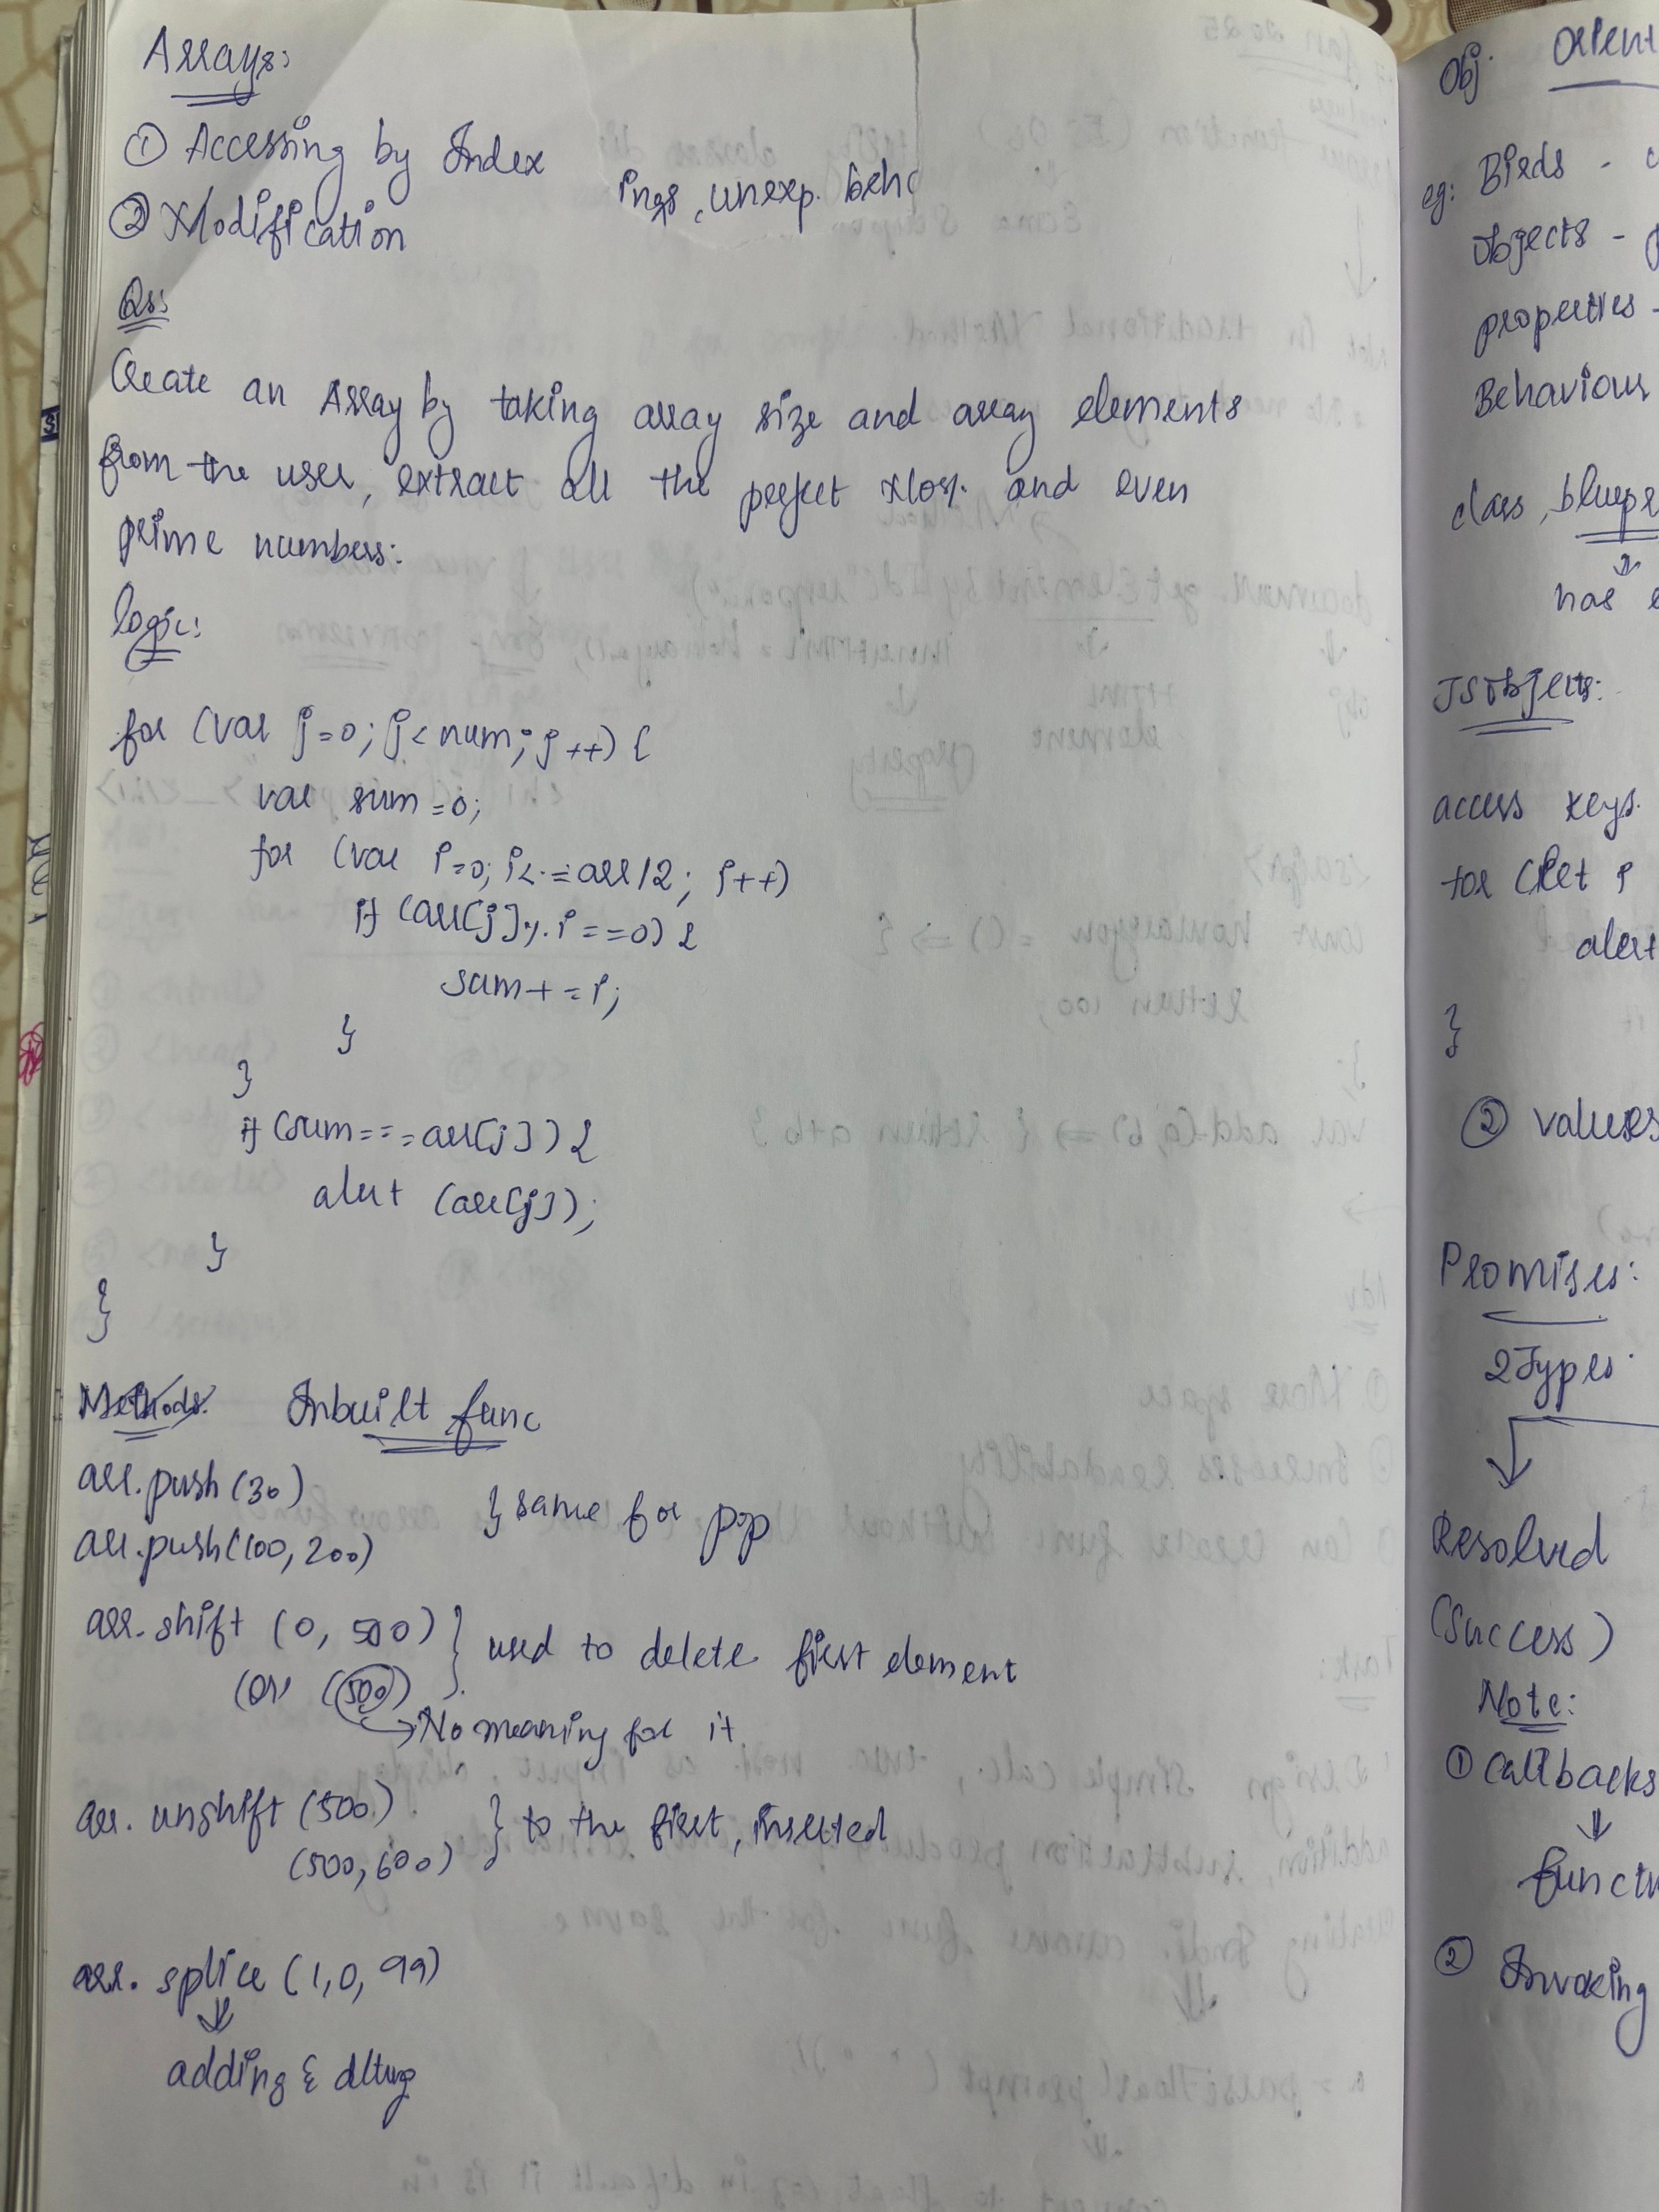 Arrays:
① Accessing by Index
ings, unexp. beh
② Modification
Qs:
Create an Array by taking array size and array elements
from the user, extract all the perfect Nos. and even
prime numbers:
logic:
for (var j=0; j< num; j++) {
var sum=0;
for (var i=0; i<=arr/2; i++)
if (arr[j] % i ==0) {
sum+=i;
}
}
if (sum===arr[j]) {
alert (arr[j]);
}
}
Methods. Inbuilt func
arr.push(30)
arr.push(100, 200) } same for pop
arr.shift (0, 500) } used to delete first element
(or (500)
→ No meaning for it
arr. unshift (500) } to the first, inserted
(500, 600)
arr. splice (1, 0, 99)
adding & dlting
Obj. Orient
eg: Birds - c
objects - p
properties -
Behaviour
class, bluepr
has
JS objects:
access keys.
for (let i
alert
}
② values
Promises:
2 Types
Resolved
(Success)
Note:
① Callbacks
functi
② Invoking